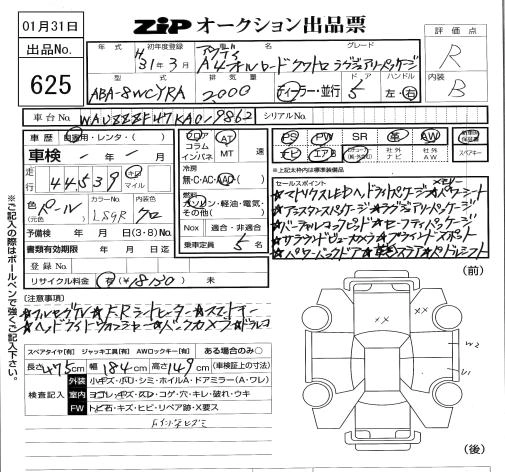 01月31日
ZIP オークション出品票
出品No.
625
年式 初年度登録 車名 グレード
H31年3月 アウディ A4オールロードクワトロ ラグジュアリーパッケージ
型式 排気量 ドア ハンドル
ABA-8WCYRA 2,000 ディーラー・並行 5 左・右
評価点
R
内装
B
車台No. WAUZZZF47KA019862 シリアルNo.
車歴 自家用・レンタ・( )
車検 年 月
走行 44539 キロ マイル
色(元色) パール カラーNo. LS9R 内装色 クロ
予備検 年 月 日(3・8)No.
書類有効期限 年 月 日迄
登録No.
リサイクル料金 有( ) 無
フロア コラム インパネ AT MT 速
冷房 無・C・AC・AAC
燃料 ガソリン・軽油・電気・その他( )
Nox 適合・非適合
乗車定員 5名
PS PW SR 革 AW
ナビ エアB 社外ナビ 社外AW スペアキー
※上記以外は標準装備品
セールスポイント
★マトリクスLEDヘッドライトパッケージ★パワーシート
★アシスタンスパッケージ★ラグジュアリーパッケージ
★バーチャルコックピット★セーフティパッケージ
★サラウンドビューカメラ★ブラインドスポット
★パワーバックドア ★パドルシフト
(注意事項)
★フルセグTV★FRシートヒーター★スマートキー
★ヘッドライトウォッシャー★バックカメラ★ドラレコ
スペアタイヤ[有] ジャッキ工具[有] AWロックキー[有] ある場合のみ○
長さ475cm 幅184cm 高さ149cm (車検証上の寸法)
検査記入
外装 小キズ・小凹・シミ・ホイルA・ドアミラー(A・ワレ)
室内 ヨゴレ・キズ・スレ・コゲ・穴・キレ・破れ・ウキ
FW トビ石・キズ・ヒビ・リペア跡・X要ス
※ご記入の際はボールペンで強くご記入下さい。
(前)
XX
XX
W2
U1
(後)